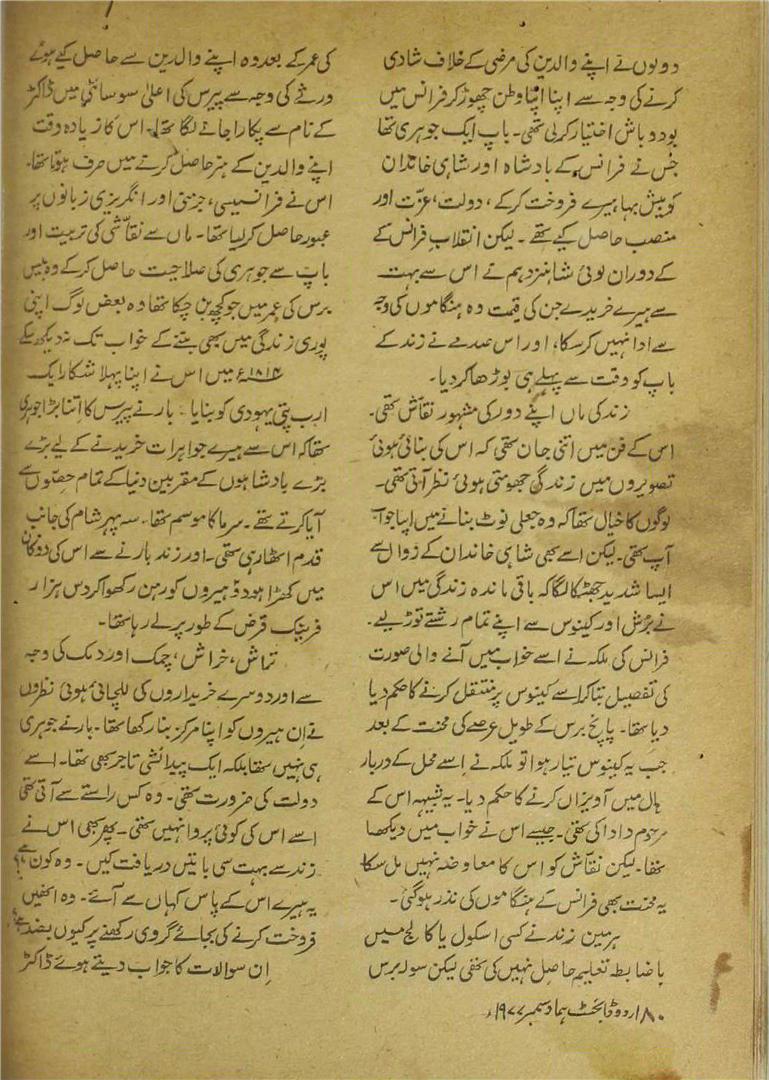 دونوں نے اپنے والدین کی مرضی کے خلاف شادی
کرنے کی وجہ سے اپنا اپنا وطن چھوڑ کر فرانس میں
بود و باش اختیار کر لی تھی۔ باپ ایک جوہری تھا
جس نے فرانس کے بادشاہ اور شاہی خاندان
کو بیش بہا ہیرے فروخت کرکے، دولت، عزّت اور
منصب حاصل کیے تھے۔ لیکن انقلابِ فرانس کے
کے دوران لوئی شانزدہم نے اس سے بہت
سے ہیرے خریدے جن کی قیمت وہ ہنگاموں کی وجہ
سے ادا نہیں کر سکا، اور اس صدمے نے زند کے
باپ کو وقت سے پہلے ہی بوڑھا کر دیا۔
زند کی ماں اپنے دور کی مشہور نقاش تھی۔
اس کے فن میں اتنی جان تھی کہ اس کی بنائی ہوئی
تصویروں میں زندگی جھومتی ہوئی نظر آتی تھی۔
لوگوں کا خیال تھا کہ وہ جعلی نوٹ بنانے میں اپنا جواب
آپ تھی۔ لیکن اسے بھی شاہی خاندان کے زوال سے
ایسا شدید جھٹکا لگا کہ باقی ماندہ زندگی میں اس
نے برش اور کینوس سے اپنے تمام رشتے توڑ لیے۔
فرانس کی ملکہ نے اسے خواب میں آنے والی صورت
کی تفصیل بتا کر اسے کینوس پر منتقل کرنے کا حکم دیا
دیا تھا۔ پانچ برس کے طویل عرصے کی محنت کے بعد
جب یہ کینوس تیار ہوا تو ملکہ نے اسے محل کے دربار
ہال میں آویزاں کرنے کا حکم دیا۔ یہ شبیہہ اس کے
مرحوم دادا کی تھی۔ جسے اس نے خواب میں دیکھا
تھا۔ لیکن نقاش کو اس کا معاوضہ نہیں مل سکا
یہ محنت بھی فرانس کے ہنگاموں کی نذر ہو گئی۔
ہرمین زند نے کسی اسکول یا کالج میں
باضابطہ تعلیم حاصل نہیں کی تھی لیکن سولہ برس
کی عمر کے بعد وہ اپنے والدین سے حاصل کیے ہوئے
ورثے کی وجہ سے پیرس کی اعلیٰ سوسائٹی میں ڈاکٹر
کے نام سے پکارا جانے لگا تھا۔ اس کا زیادہ وقت
اپنے والدین کے ہنر حاصل کرنے میں صرف ہوتا تھا۔
اس نے فرانسیسی، جرمنی اور انگریزی زبانوں پر
عبور حاصل کر لیا تھا۔ ماں سے نقاشی کی تربیت اور
باپ سے جوہری کی صلاحیت حاصل کرکے وہ بیس
برس کی عمر میں جو کچھ بن چکا تھا وہ بعض لوگ اپنی
پوری زندگی میں بھی بننے کے خواب تک نہ دیکھ سکے
۱۸۱۴ء میں اس نے اپنا پہلا شکار ایک
ارب پتی یہودی کو بنایا۔ بارنے پیرس کا اتنا بڑا جوہری
تھا کہ اس سے ہیرے جواہرات خریدنے کے لیے بڑے
بڑے بادشاہوں کے مقربین دنیا کے تمام حصّوں سے
آیا کرتے تھے۔ سرما کا موسم تھا۔ سہ پہر شام کی جانب
قدم اٹھا رہی تھی۔ اور زند بارنے سے اس کی دوکان
میں کھڑا ہوا دو ہیروں کو رہن رکھوا کر دس ہزار
فرینک قرض کے طور پر لے رہا تھا۔
تماش، خراش، چمک اور دمک کی وجہ
سے اور دوسرے خریداروں کی للچائی ہوئی نظروں
نے ان ہیروں کو اپنا مرکز بنا رکھا تھا۔ بارنے جوہری
ہی نہیں تھا بلکہ ایک پیدائشی تاجر بھی تھا۔ اسے
دولت کی ضرورت تھی۔ وہ کس راستے سے آتی تھی
اسے اس کی کوئی پروا نہیں تھی۔ پھر بھی اس نے
زند سے بہت سی باتیں دریافت کیں۔ وہ کون ہے؟
یہ ہیرے اس کے پاس کہاں سے آئے۔ وہ انھیں
فروخت کرنے کی بجائے گروی رکھنے پر کیوں بضد ہے؟
اِن سوالات کا جواب دیتے ہوئے ڈاکٹر
۱۸۰ اردو ڈائجسٹ ہما دسمبر ۱۹۷۷ء